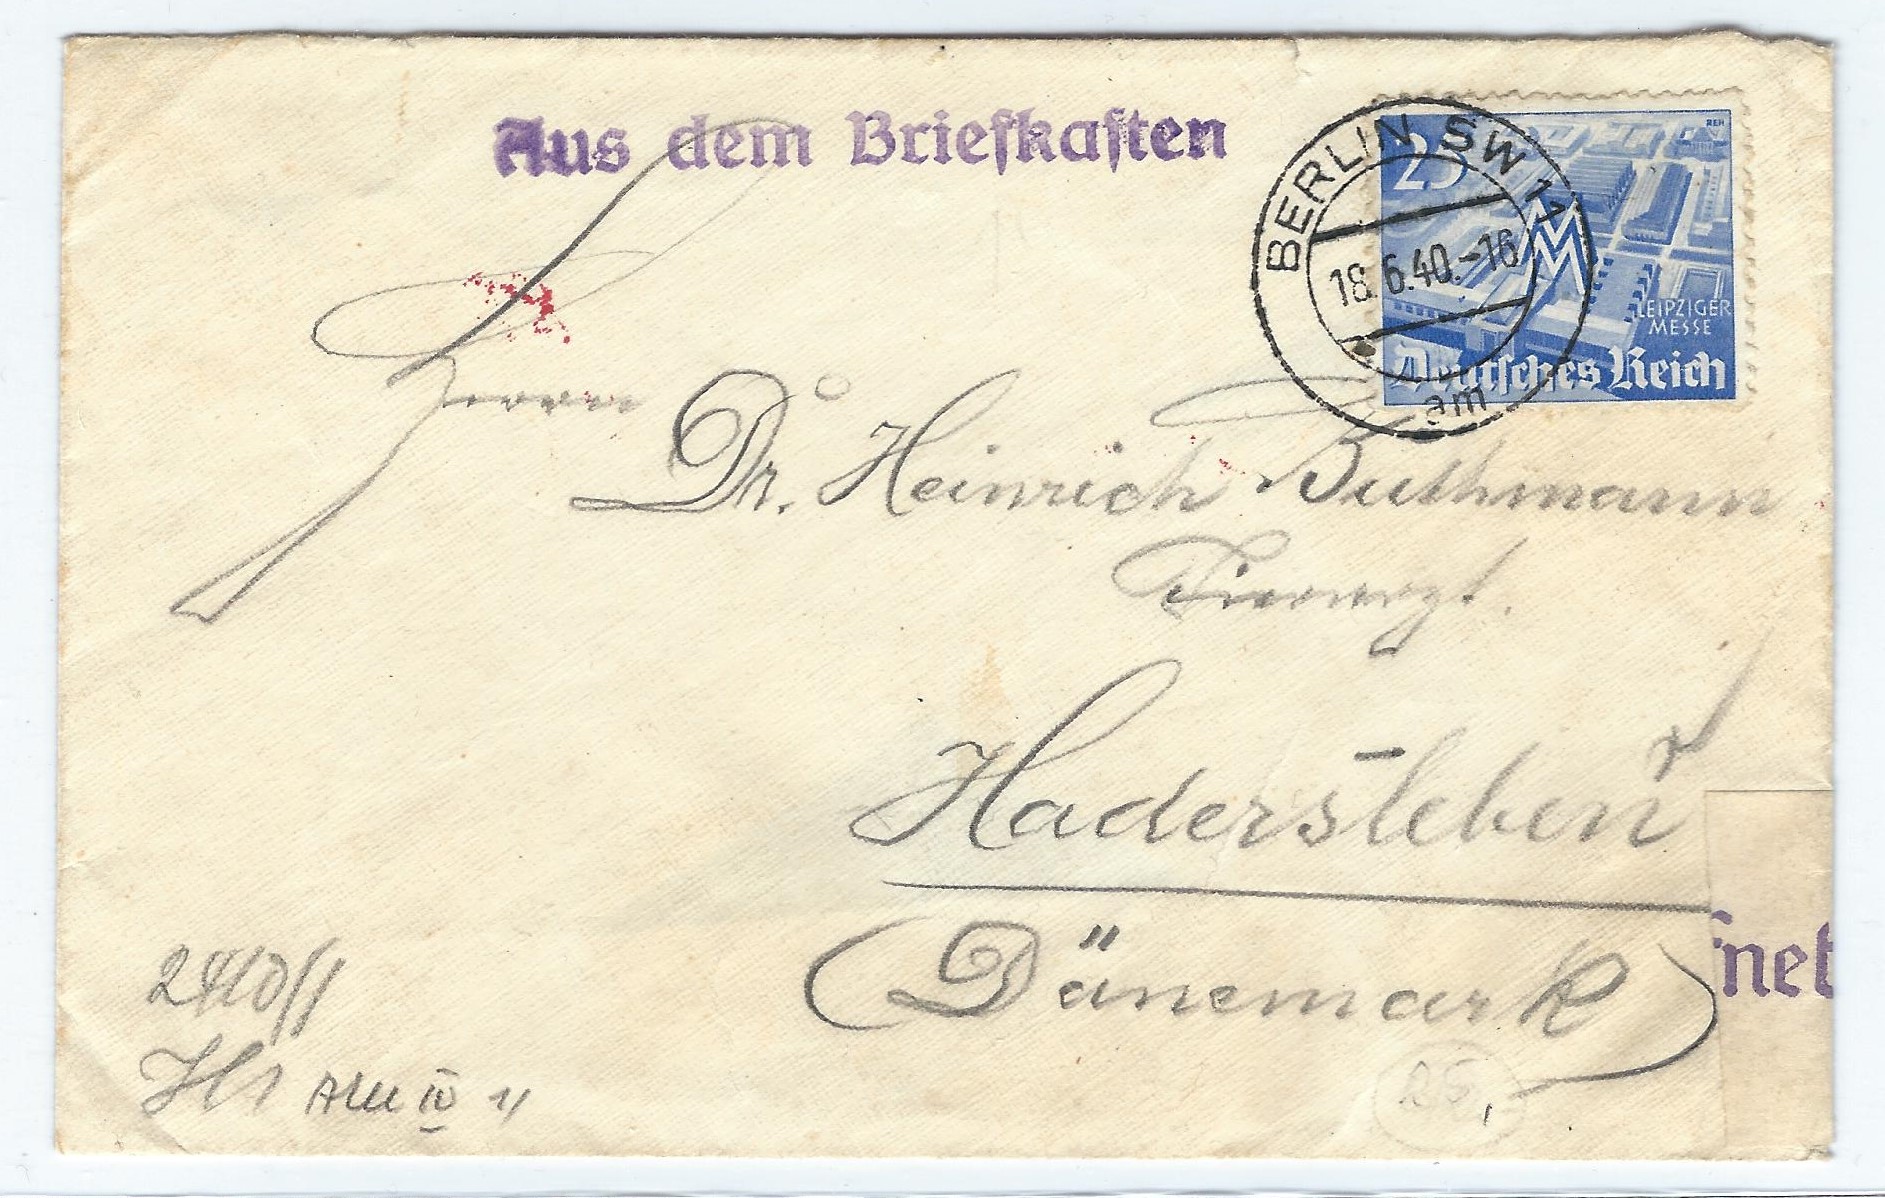 Aus dem Briefkasten
BERLIN SW 11
18.6.40.-16
am
25
REH
MM
LEIPZIGER
MESSE
Deutsches Reich
Herrn
Dr. Heinrich Buthmann
Tierarzt.
Hadersleben
(Dänemark)
fnet
IV
25,